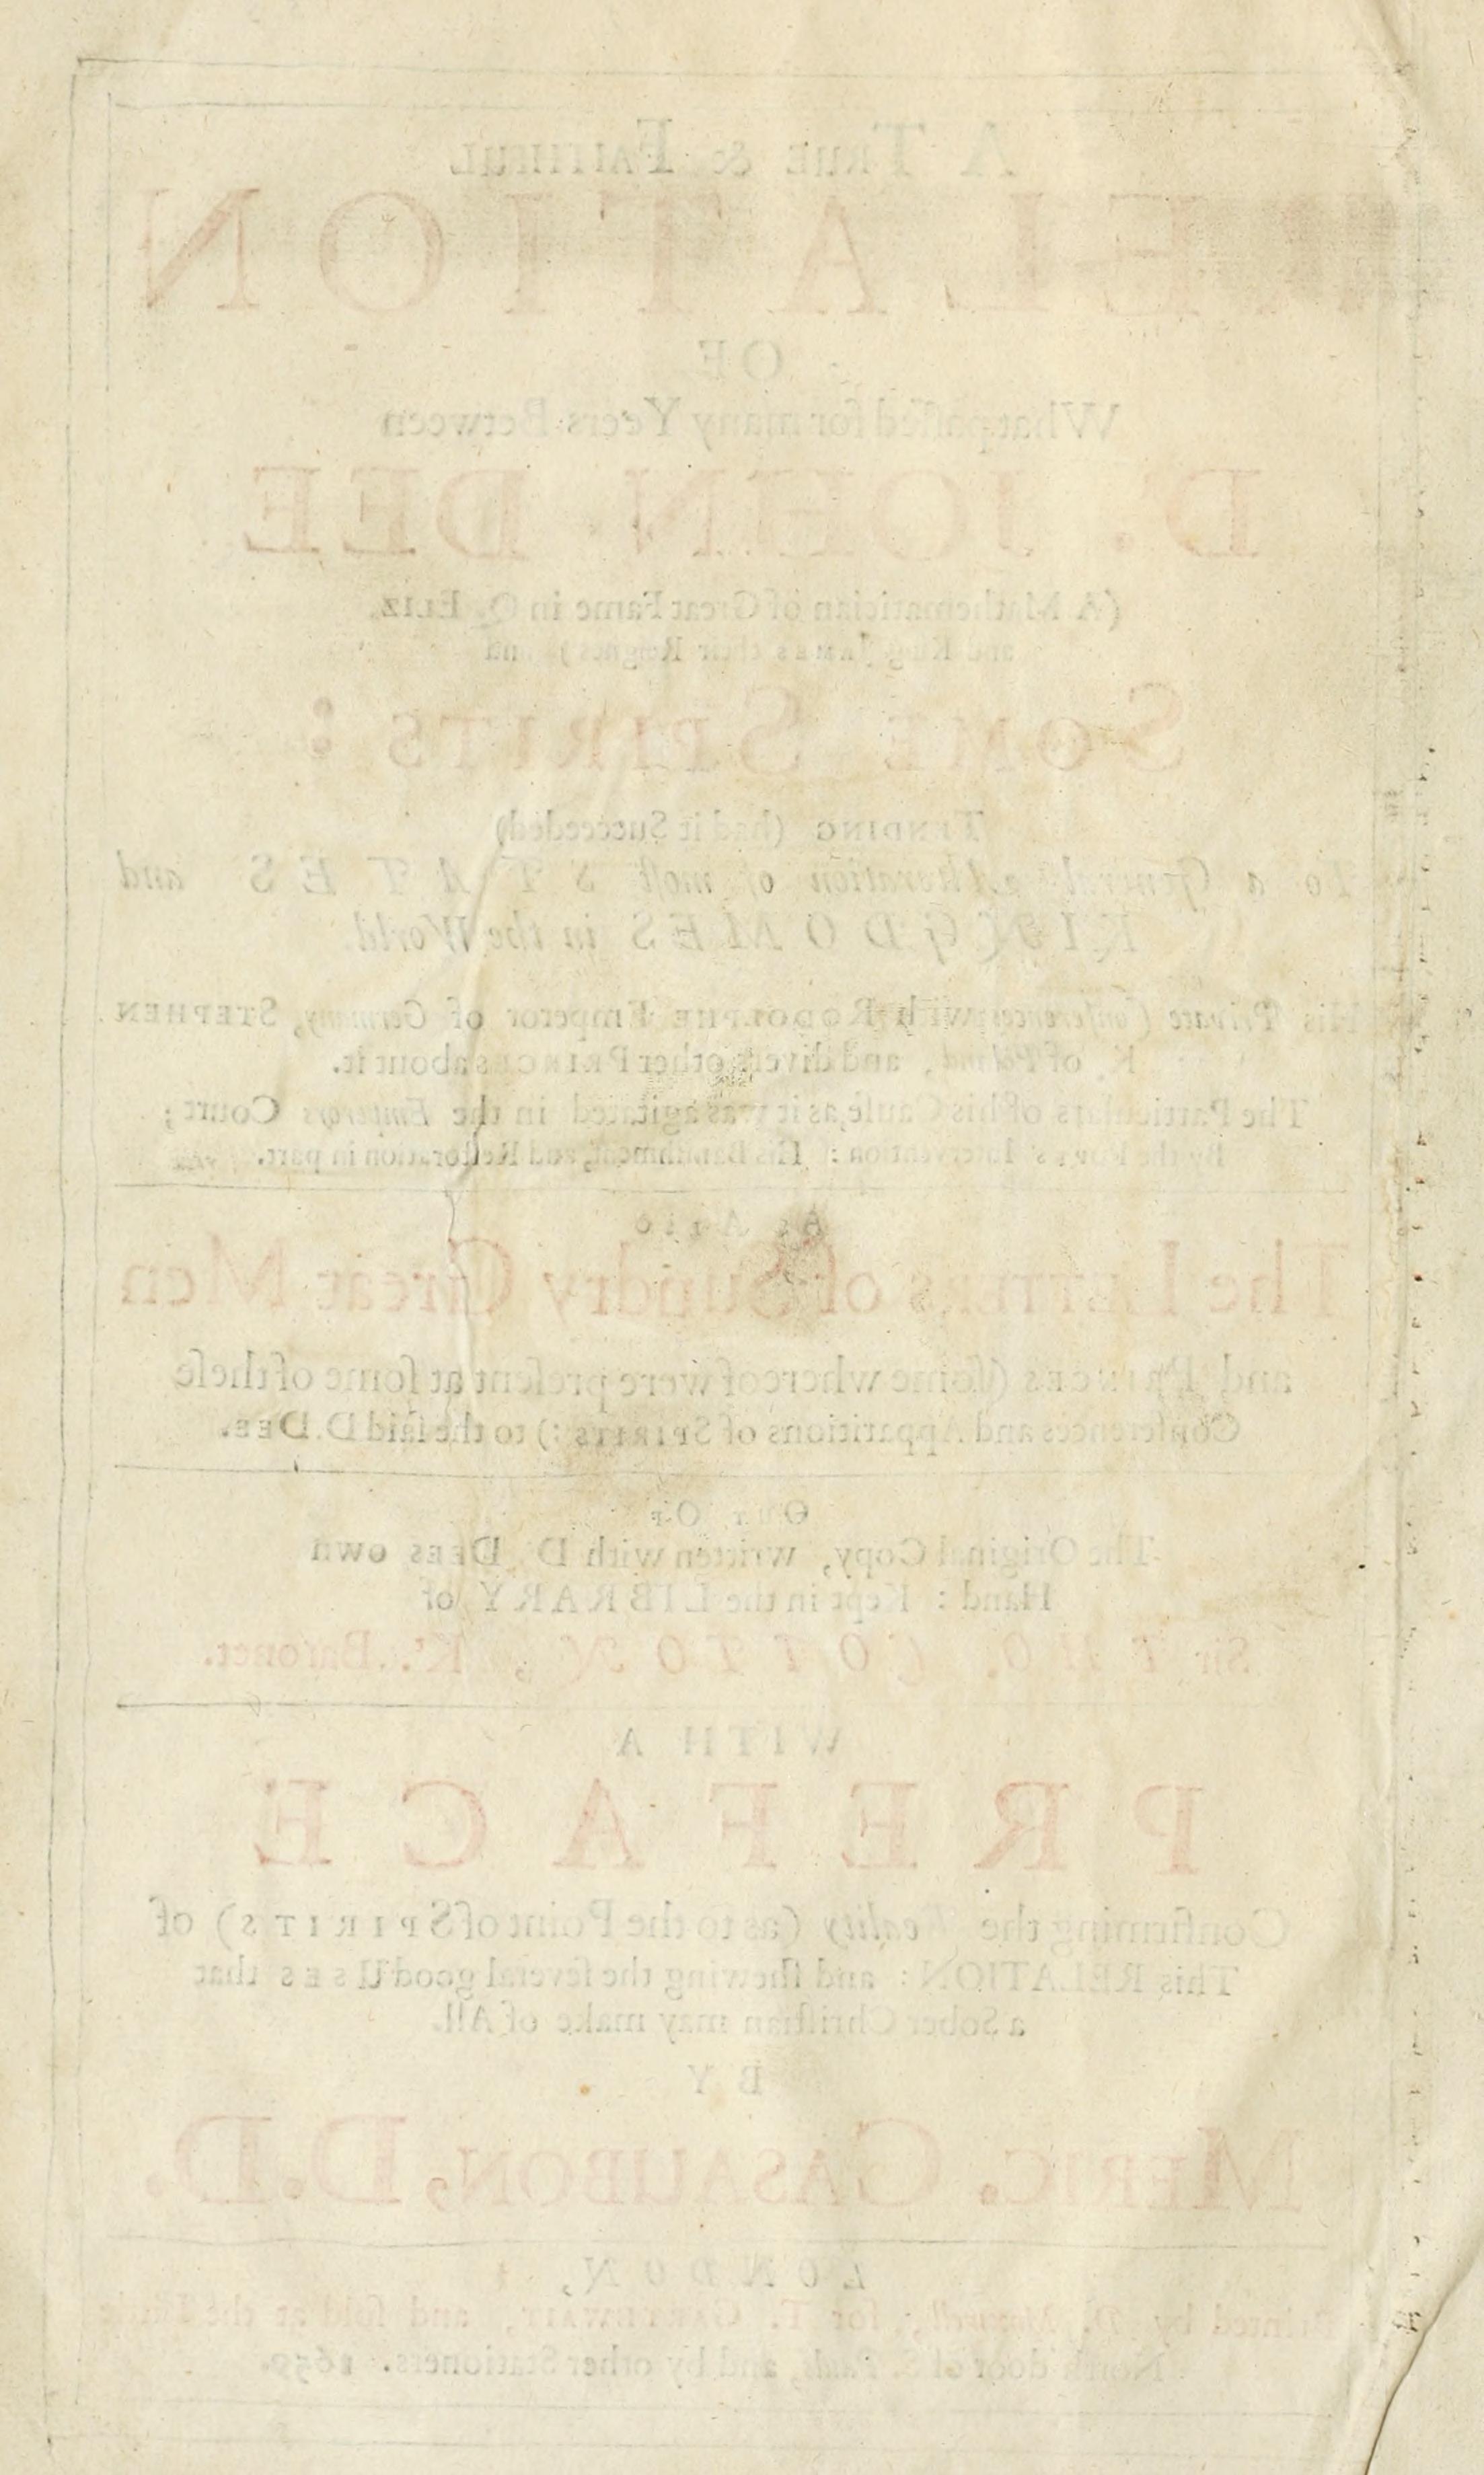 A TRUE & FAITHFUL
RELATION
OF
What paſſed for many Yeers Between
Dr. JOHN DEE
(A Mathematician of Great Fame in Q. ELIZ.
and King JAMES their Reignes) and
SOME SPIRITS:
TENDING (had it Succeeded)
To a General Alteration of moſt STATES and
KINGDOMES in the World.
His Private Conferences with RODOLPHE Emperor of Germany, STEPHEN
K. of Poland, and divers other PRINCES about it.
The Particulars of his Cauſe, as it was agitated in the Emperors Court;
By the POPES Intervention: His Baniſhment, and Reſtoration in part.
AS ALSO
The LETTERS of Sundry Great Men
and PRINCES (ſome whereof were preſent at ſome of theſe
Conferences and Apparitions of SPIRITS:) to the ſaid D. DEE.
OUT OF
The Original Copy, written with Dr. DEES own
Hand: Kept in the LIBRARY of
Sir THO. COTTON, Kt. Baronet.
WITH A
PREFACE
Confirming the Reality (as to the Point of SPIRITS) of
This RELATION: and ſhewing the ſeveral good USES that
a Sober Chriſtian may make of All.
BY
MERIC. CASAUBON, D.D.
LONDON,
Printed by D. Maxwell, for T. GARTHWAIT, and ſold at the Little
North door of S. Pauls, and by other Stationers. 1659.